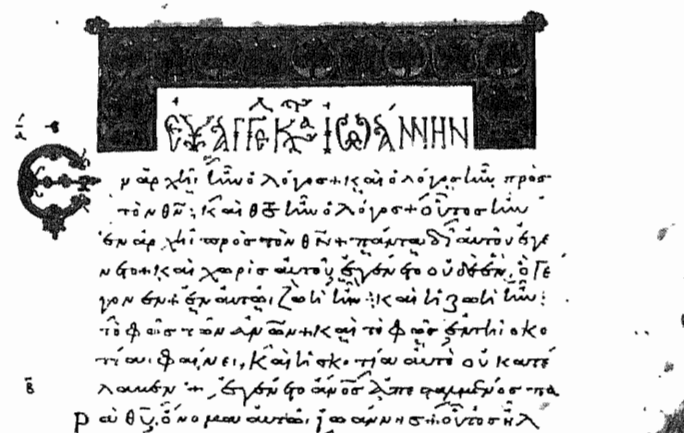 ΕΥΑΓΓΕΛ ΚΑΤΑ ΙΩΑΝΝΗΝ
α
Ἐν ἀρχῆι ἦν ὁ λόγος + καὶ ὁ λόγος ἦν πρὸς
τὸν θ̅ν̅ · καὶ θ̅ς̅ ἦν ὁ λόγος + οὗτος ἦν
ἐν ἀρχῆι πρὸς τὸν θ̅ν̅ + πάντα δι' αὐτοῦ ἐγέ
νετο + καὶ χωρὶς αὐτοῦ ἐγένετο οὐδὲ ἕν, ὃ γέ
γονεν + ἐν αὐτῶι ζωὴ ἦν · καὶ ἡ ζωὴ ἦν ·
τὸ φῶς τῶν α̅ν̅ω̅ν̅ + καὶ τὸ φῶς ἐν τῆι σκο
τίαι φαίνει, καὶ ἡ σκοτία αὐτὸ οὐ κατέ
β
λαβεν + ἐγένετο ἄ̅ν̅ο̅ς̅ ἀπεσταλμένος πα
ρὰ θ̅υ̅, ὄνομα αὐτῶι ἰωάννης + οὗτος ἦλ